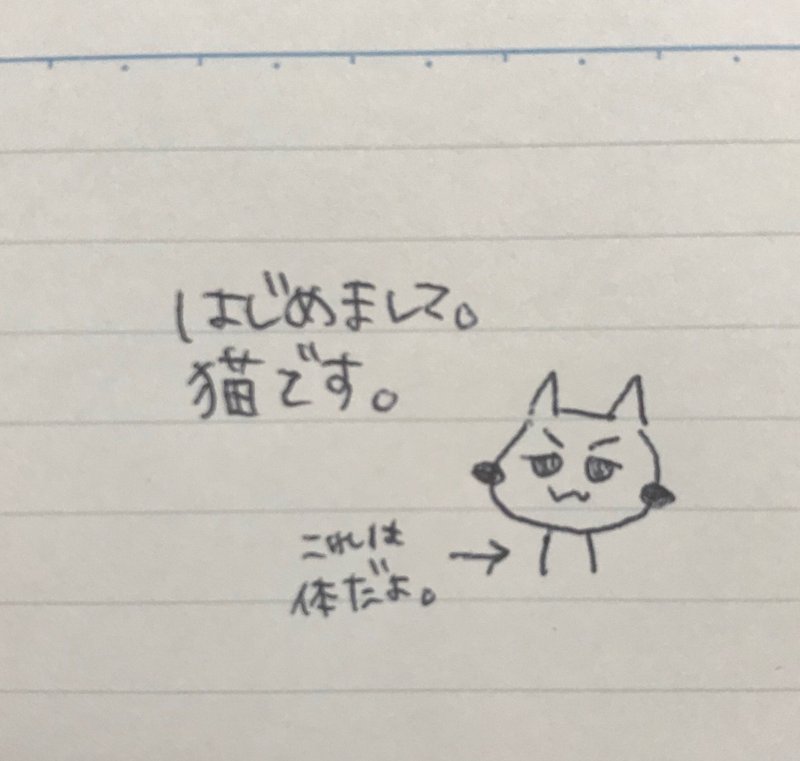 はじめまして。
猫です。
これは
体だよ。